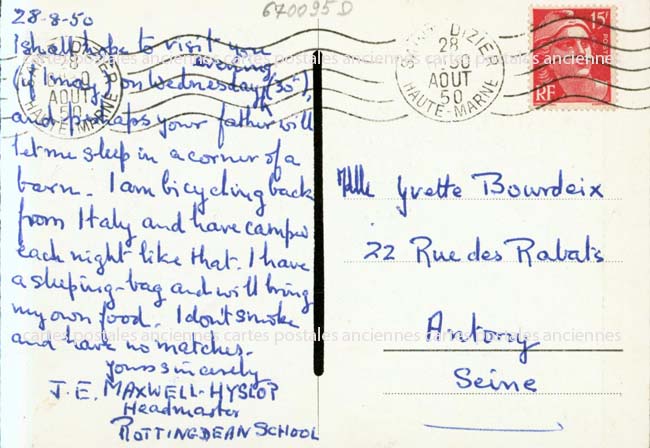 670095D
28-8-50
I shall hope to visit you
(if I may) on Wednesday evening (30th),
and perhaps your father will
let me sleep in a corner of a
barn. I am bicycling back
from Italy and have camped
each night like that. I have
a sleeping-bag and will bring
my own food. I don't smoke
and have no matches.
Yours sincerely
J. E. MAXWELL-HYSLOP
Headmaster
ROTTINGDEAN SCHOOL
DIZIER
28
AOUT
50
HAUTE-MARNE
DIZIER
28
AOUT
50
HAUTE-MARNE
15F
RF
Mlle Yvette Bourdeix
22 Rue des Rabats
Antony
Seine
cartes postales anciennes cartes postales anciennes cartes postales anciennes